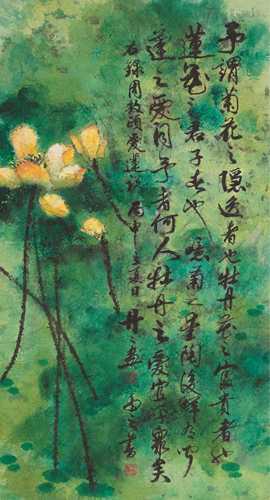 予謂菊花之隱逸者也牡丹花之富貴者也
蓮花之君子者也噫菊之愛陶後鮮有聞
蓮之愛同予者何人牡丹之愛宜乎衆矣
右錄周敦頤愛蓮說丙申立夏日